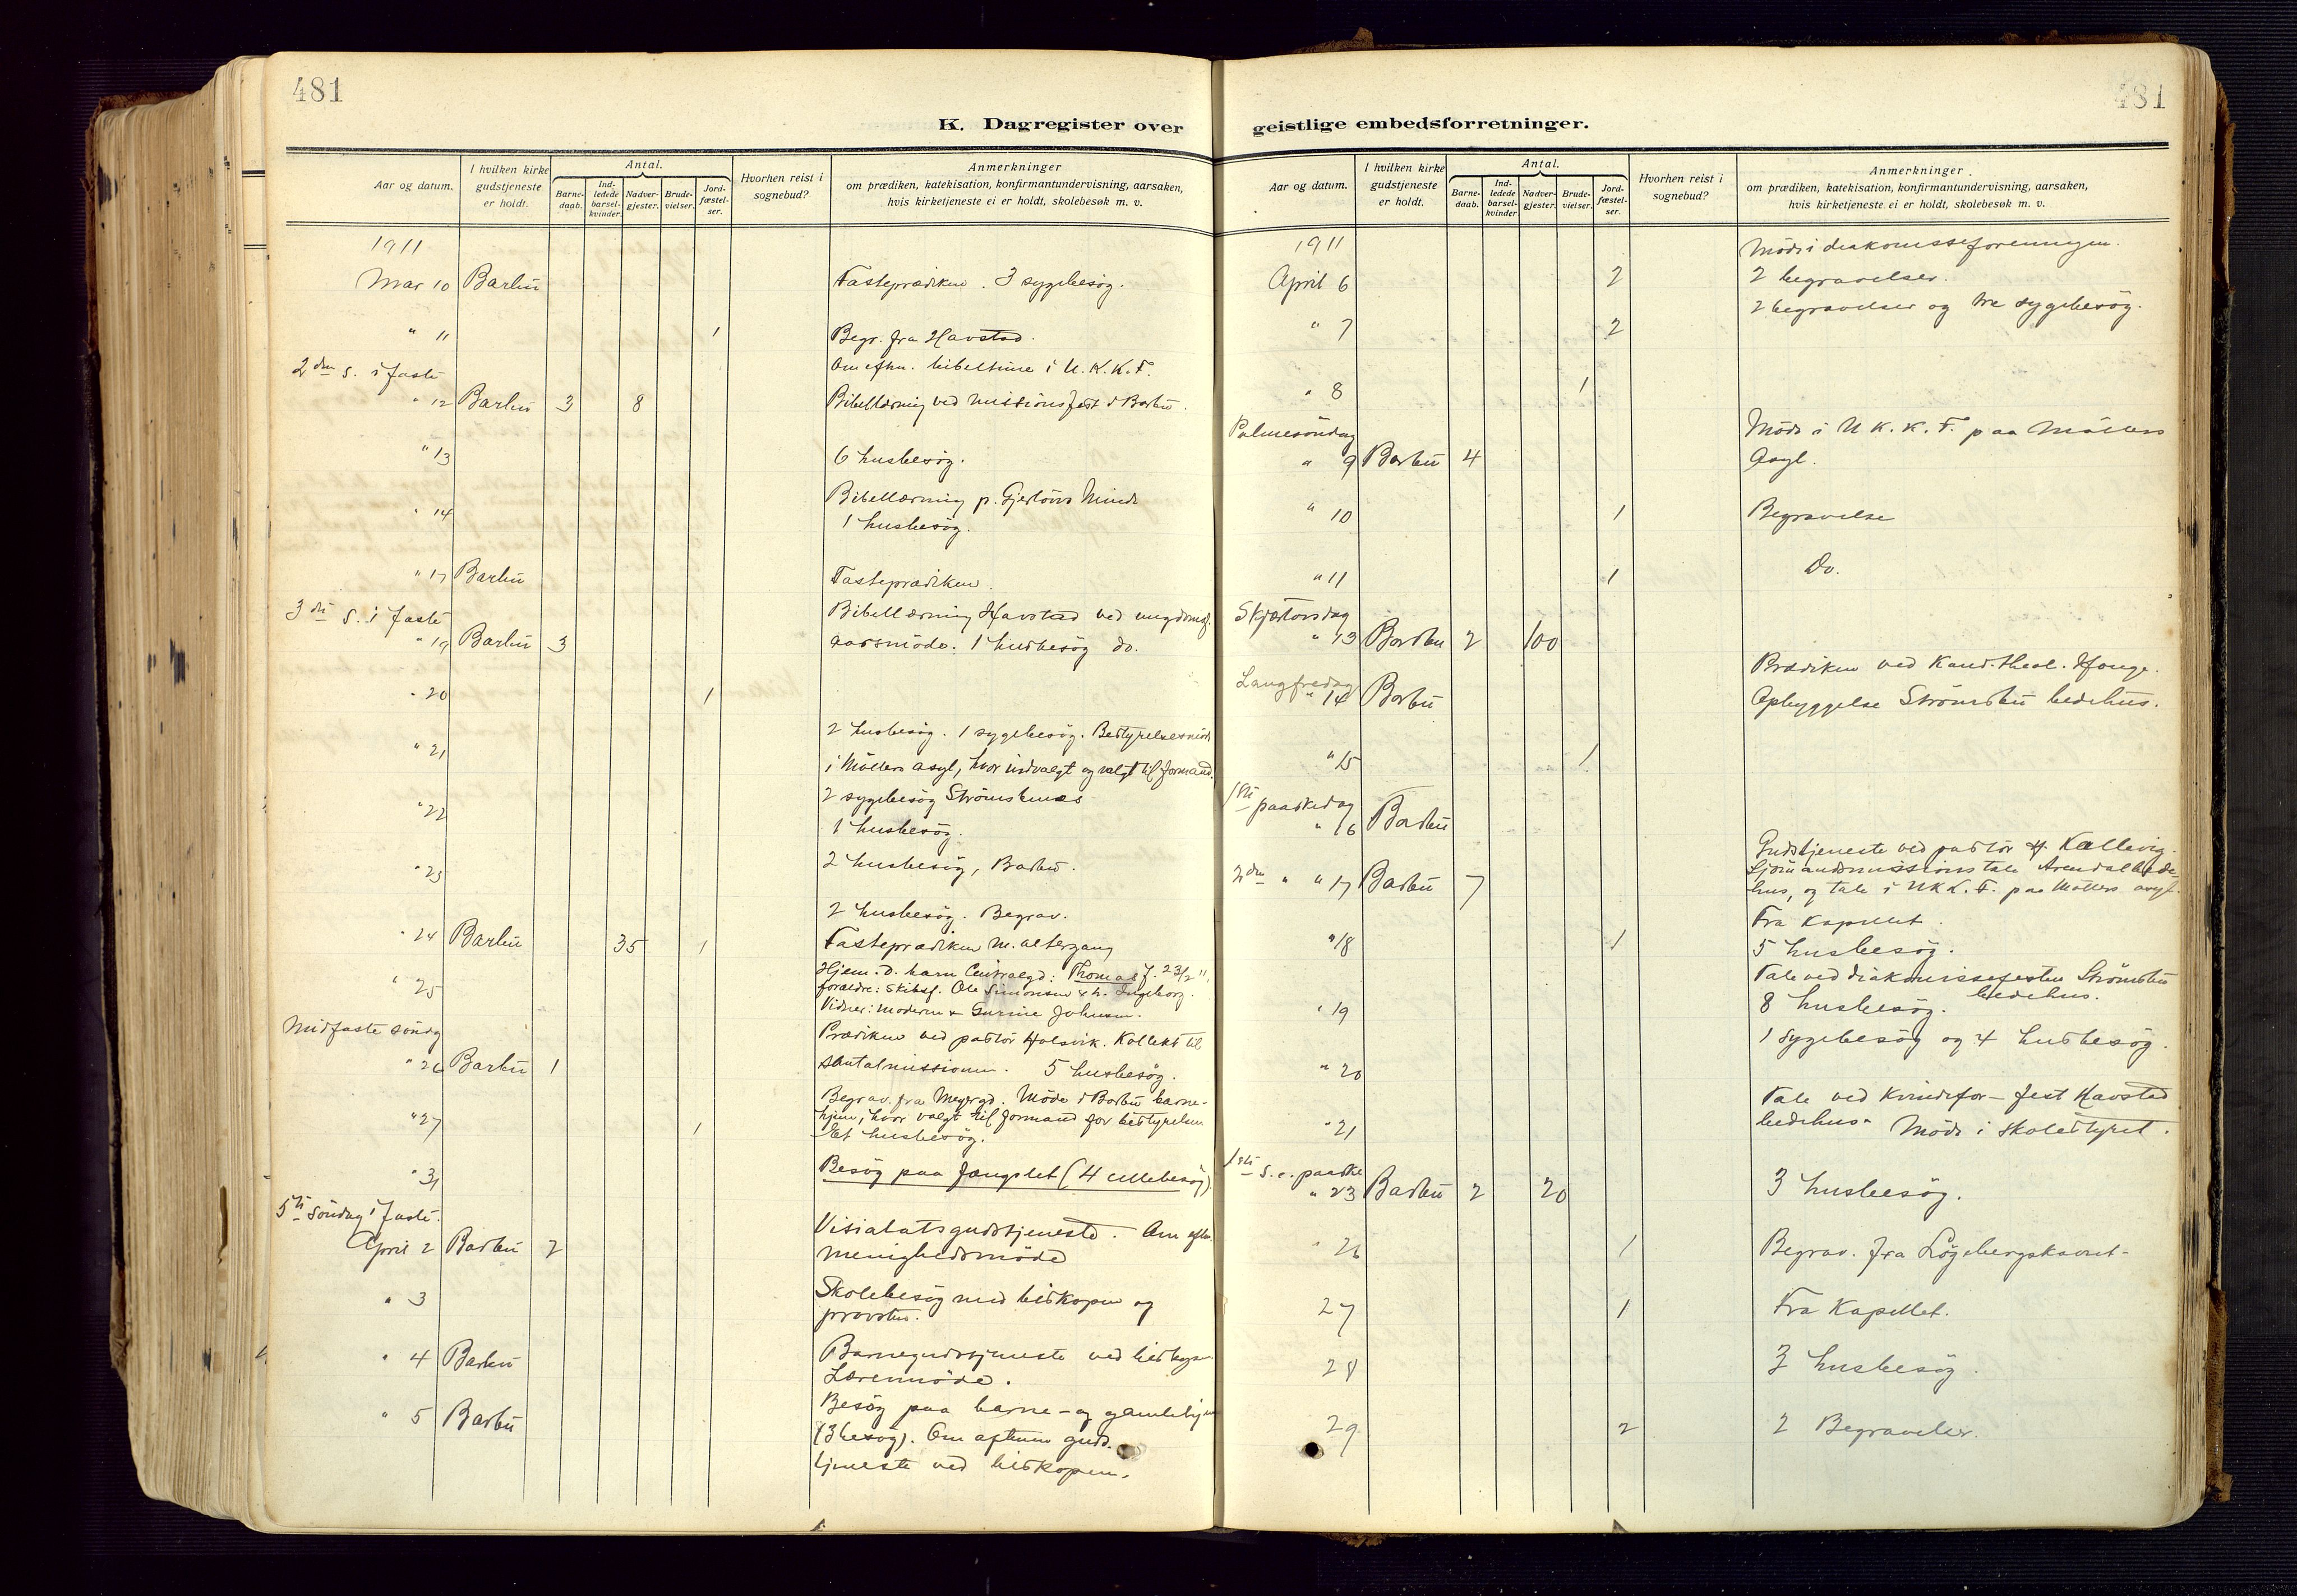 481
K. Dagregister over
Aar og datum.
I hvilken kirke
gudstjeneste
er holdt.
Antal.
Barne-
daab.
Ind-
ledede
barsel-
kvinder.
Nadver-
gjester.
Brude-
vielser.
Jord-
fæstel-
ser.
Hvorhen reist i
sognebud?
Anmerkninger
om prædiken, katekisation, konfirmantundervisning, aarsaken,
hvis kirketjeneste ei er holdt, skolebesøk m. v.
1911
Mar 10 Barbu Fasteprædiken. 3 sygebesög.
" 11 1 Begr. fra Havstad.
2den s. i faste Om eftm. bibeltime i U.K.K.F.
" 12 Barbu 3 8 Bibellæsning ved missionsfest i Barbu.
" 13 6 husbesög.
Bibellæsning p. Gjertöns Minde
" 14 1 husbesög.
" 17 Barbu Fasteprædiken.
3die S. i Faste Bibellæsning Havstad ved ungdomsf.
" 19 Barbu 3 aarsmöde. 1 husbesög do.
" 20 1
2 husbesög. 1 sygebesög. Bestyrelsesmöde
" 21 i Möllers asyl, hvor indvalgt og valgt til formand.
2 sygebesög Strömsbunes
" 22 1 husbesög.
" 23 2 husbesög, Barbu.
2 husbesög. Begrav.
" 24 Barbu 35 1 Fasteprædiken m. altergang
" 25 Hjem. d. barn Centralgd: Thomas f. 23/2 11,
forældre: Skibsf. Ole Simonsen & h. Ingeborg.
Vidner: moderen & Gurine Johnsen.
Midfaste söndg Prædiken ved pastor Holsvik. Kollekt til
" 26 Barbu 1 santalmissionen. 5 husbesög.
Begrav. fra Meyergd. Möde i Barbu barne-
" 27 1 hjem, hvor valgt til formand for bestyrelsen
Et husbesög.
" 31 Besög paa fængslet (4 cellebesög)
5te Söndag i Faste.
Visitatsgudstjeneste. Om eftm.
April 2 Barbu 2 menighedsmöde
" 3 Skolebesög med biskopen og
provsten.
" 4 Barbu Barnegudstjeneste ved biskopen.
Læremöde.
" 5 Barbu Besög paa barne- og gamlehjem
(3 besög). Om aftenen guds-
tjeneste ved biskopen.
481
geistlige embedsforretninger.
Aar og datum.
I hvilken kirke
gudstjeneste
er holdt.
Antal.
Barne-
daab.
Ind-
ledede
barsel-
kvinder
Nadver-
gjester.
Brude-
vielser.
Jord-
fæstel-
ser.
Hvorhen reist i
sognebud?
Anmerkninger
om prædiken, katekisation, konfirmantundervisning, aarsaken,
hvis kirketjeneste ei er holdt, skolebesøk m. v.
1911 Möde i diakonisseforeningen.
April 6 2 2 begravelser.
" 7 2 2 begravelser og tre sygebesög.
" 8 1
Palmesöndag Möde i U.K.K.F. paa Möllers
" 9 Barbu 4 Asyl.
" 10 1 Begravelse
" 11 1 Do.
Skjærtorsdag
" 13 Barbu 2 100
Prædiken ved Kand. theol. Hauge.
Langfredag
" 14 Barbu Opbyggelse Strömsbu bedehus.
" 15 1
1ste paaskedag
" 16 Barbu
Gudstjeneste ved pastor H. Kallevig.
2den " " 17 Barbu 7 Sjömandsmissions tale Arendal bede-
hus, og tale i UKKF. paa Möllers asyl.
Fra Kapellet.
" 18 1 5 husbesög.
Tale ved diakonissefesten Strömsbu
bedehus.
" 19 8 husbesög.
1 sygebesög og 4 husbesög.
" 20
Tale ved Kvindefor- fest Havstad
" 21 bedehus. Möde i Skolestyret.
1ste s. e. paaske
" 23 Barbu 2 20 3 husbesög.
" 26 1 Begrav. fra
27 1 Fra Kapellet.
28 3 husbesög.
29 2 2 Begravelser.